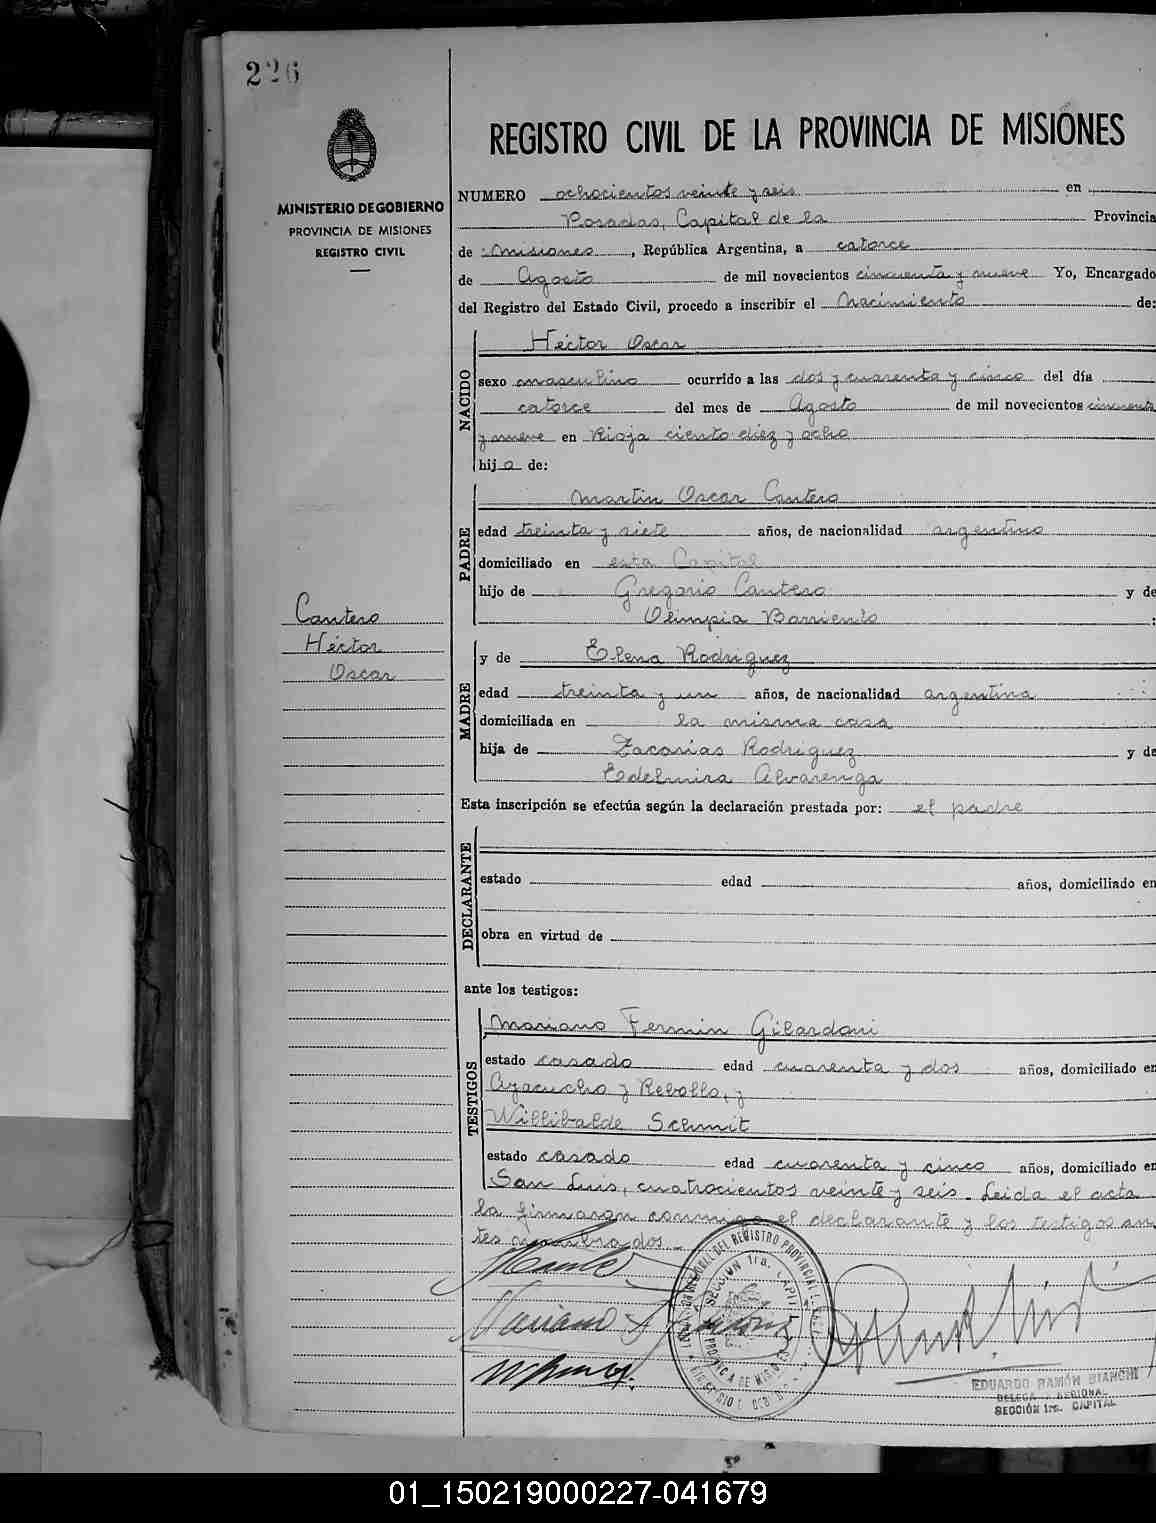 226
MINISTERIO DE GOBIERNO
PROVINCIA DE MISIONES
REGISTRO CIVIL
Cantero
Héctor
Oscar
REGISTRO CIVIL DE LA PROVINCIA DE MISIONES
NUMERO ochocientos veinte y seis en
Posadas, Capital de la Provincia
de Misiones, República Argentina, a catorce
de Agosto de mil novecientos cincuenta y nueve Yo, Encargado
del Registro del Estado Civil, procedo a inscribir el Nacimiento de:
NACIDO
Héctor Oscar
sexo masculino ocurrido a las dos y cuarenta y cinco del día
catorce del mes de Agosto de mil novecientos cincuenta
y nueve en Rioja ciento diez y ocho
hijo de:
PADRE
Martin Oscar Cantero
edad treinta y siete años, de nacionalidad argentino
domiciliado en esta Capital
hijo de Gregorio Cantero y de
Olimpia Barriento :
MADRE
y de Elena Rodriguez
edad treinta y un años, de nacionalidad argentina
domiciliada en la misma casa
hija de Zacarias Rodriguez y de
Edelmira Alvarenga
Esta inscripción se efectúa según la declaración prestada por: el padre
DECLARANTE
estado edad años, domiciliado en
obra en virtud de
ante los testigos:
TESTIGOS
Mariano Fermin Gilardoni
estado casado edad cuarenta y dos años, domiciliado en
Ayacucho y Rebollo, y
Willibalde Schmit
estado casado edad cuarenta y cinco años, domiciliado en
San Luis, cuatrocientos veinte y seis. Leida el acta
la firmaron conmigo el declarante y los testigos an
tes nombrados.
Mariano
SECCIÓN 1ra. CAPITAL
PROVINCIA DE MISIONES
EDUARDO RAMÓN BIANCHI
DELEGADO REGIONAL
SECCIÓN 1ra. CAPITAL
01_150219000227-041679